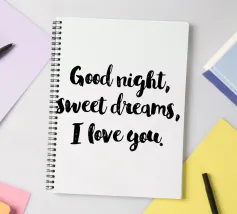 Good night,
sweet dreams,
I love you.